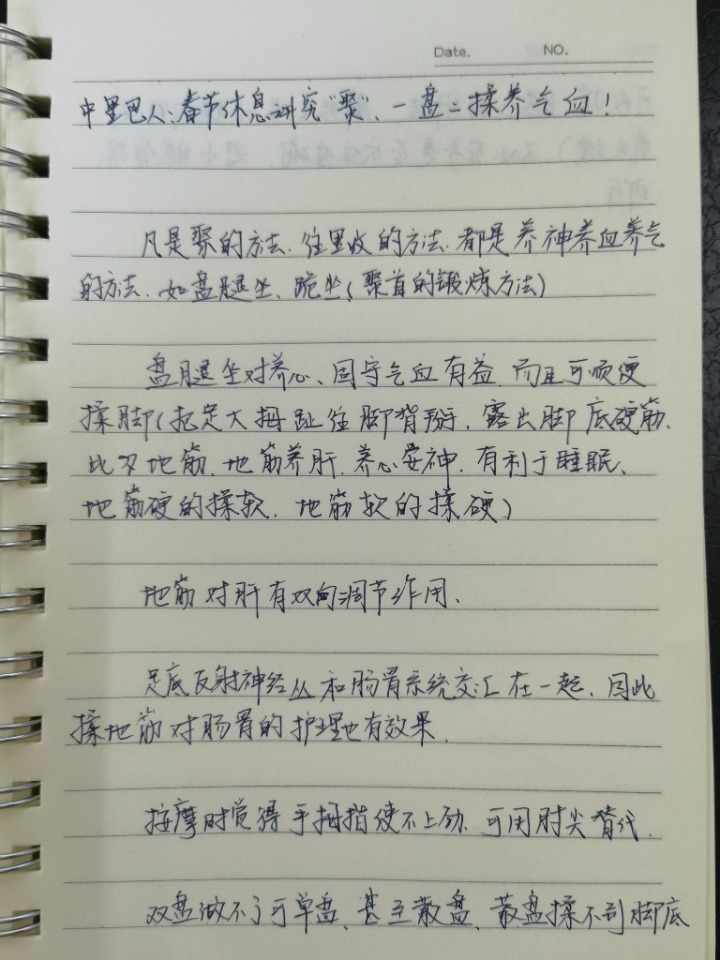 Date.
NO.
中里巴人:春节休息研究"聚"、一盘二揉养气血!
凡是聚的方法、往里收的方法、都是养神养血养气
的方法、如盘腿坐、跪坐(聚首的锻炼方法)
盘腿坐对养心、固守气血有益、而且可顺便
揉脚(把定大拇趾往脚背掰、露出脚底硬筋、
此乃地筋、地筋养肝、养心安神、有利于睡眠、
地筋硬的揉软、地筋软的揉硬)
地筋对肝有双向调节作用、
足底反射神经丛和肠胃系统交汇在一起、因此
揉地筋对肠胃的护理也有效果、
按摩时觉得手拇指使不上劲、可用肘尖替代、
双盘做不了可单盘、甚至散盘、散盘揉不到脚底